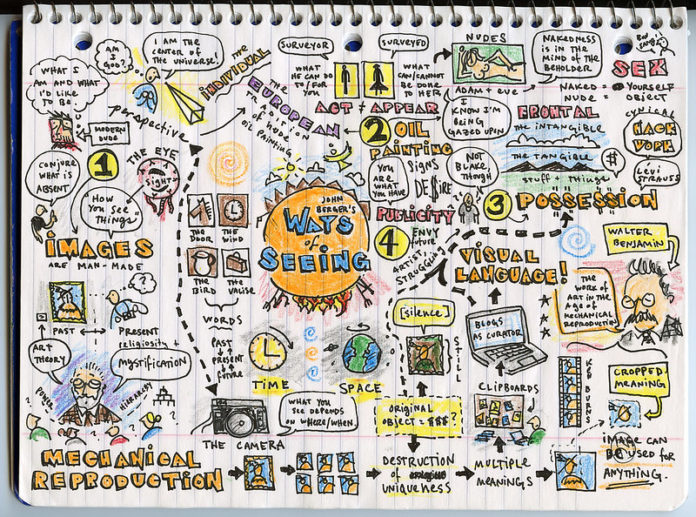 AM I GOD?
I AM THE
CENTER OF
THE UNIVERSE!
THE INDIVIDUAL
SURVEYOR
SURVEYED
WHAT
HE CAN DO
TO/FOR
YOU
WHAT
CAN/CANNOT
BE DONE
TO HER
NUDES
ADAM + EVE
NAKEDNESS
IS IN THE
MIND OF THE
BEHOLDER
SEX
NAKED = YOURSELF
NUDE = OBJECT
WHAT I
AM AND WHAT
I'D LIKE
TO BE
MODERN
DUDE
perspective
THE
EUROPEAN
TRADITION
OF NUDE
OIL PAINTING
ACT ≠ APPEAR
I
KNOW I'M
BEING
GAZED UPON
2 OIL
PAINTING
FRONTAL
THE INTANGIBLE
THE TANGIBLE
STUFF + THINGS
CYNICAL
HACK
WORK
LEVI
STRAUSS
CONJURE
WHAT IS
ABSENT
1
THE EYE
SIGHT
HOW
YOU SEE
"THINGS"
IMAGES
ARE MAN-MADE
YOU
ARE
WHAT
YOU HAVE
SIGNS
DE$IRE
NOT
BLAKE,
THOUGH
3 POSSESSION
PUBLICITY
4
ENVY
future
ARTIST,
STRUGGLING
JOHN
BERGER'S
WAYS
of
SEEING
THE
DOOR
THE
WIND
THE
BIRD
THE
VALISE
WORDS
PAST
PRESENT
future
VISUAL
LANGUAGE!
WALTER
BENJAMIN
THE
WORK OF
ART IN THE
AGE OF
MECHANICAL
REPRODUCTION
PAST
PRESENT
religiosity +
ART
THEORY
MYSTIFICATION
POWER
HIERARCHY
TIME
SPACE
[silence]
STILL
BLOGS
AS CURATOR
CLIPBOARDS
KEN BURNS
CROPPED
MEANING
THE CAMERA
WHAT YOU
SEE DEPENDS
ON WHERE/WHEN
ORIGINAL
OBJECT = $$$?
IMAGE CAN
BE USED FOR
ANYTHING.
MECHANICAL
REPRODUCTION
DESTRUCTION
OF
UNIQUENESS
MULTIPLE
MEANINGS